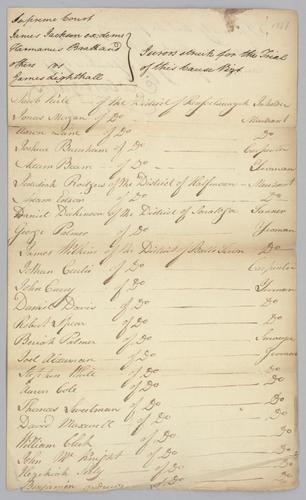 Supreme Court
James Jackson ex dem
Harmanus Bratt and
others vs
James Lighthall
Jurors struck for the Trial
of this Cause Viz
of the District of Inkeeper
Jonas Morgan of Do Merchant
Aaron Lane of Do Do
Joshua Burnham of Do Carpenter
Adam Beam of Do Yeoman
Rodgers of the District of Halfmoon Merchant
Adam of Do Do
Daniel Dickinson of the District of Saratoga Tanner
George Palmer of Do Yeoman
James Wilkins of the District of Balls Town Do
Jothan of Do Carpenter
John of Do Yeoman
Daniel Davis of Do Do
Robert Spier of Do Do
Beriah Palmer of Do Surveyor
Joel of Do Yeoman
Stephen White of Do Do
Aaron Cole of Do Do
Thomas Sweetman of Do Do
David Maxwell of Do Do
William of Do Do
John Mc Knight of Do Do
Hezekiah of Do Do
Benjamin